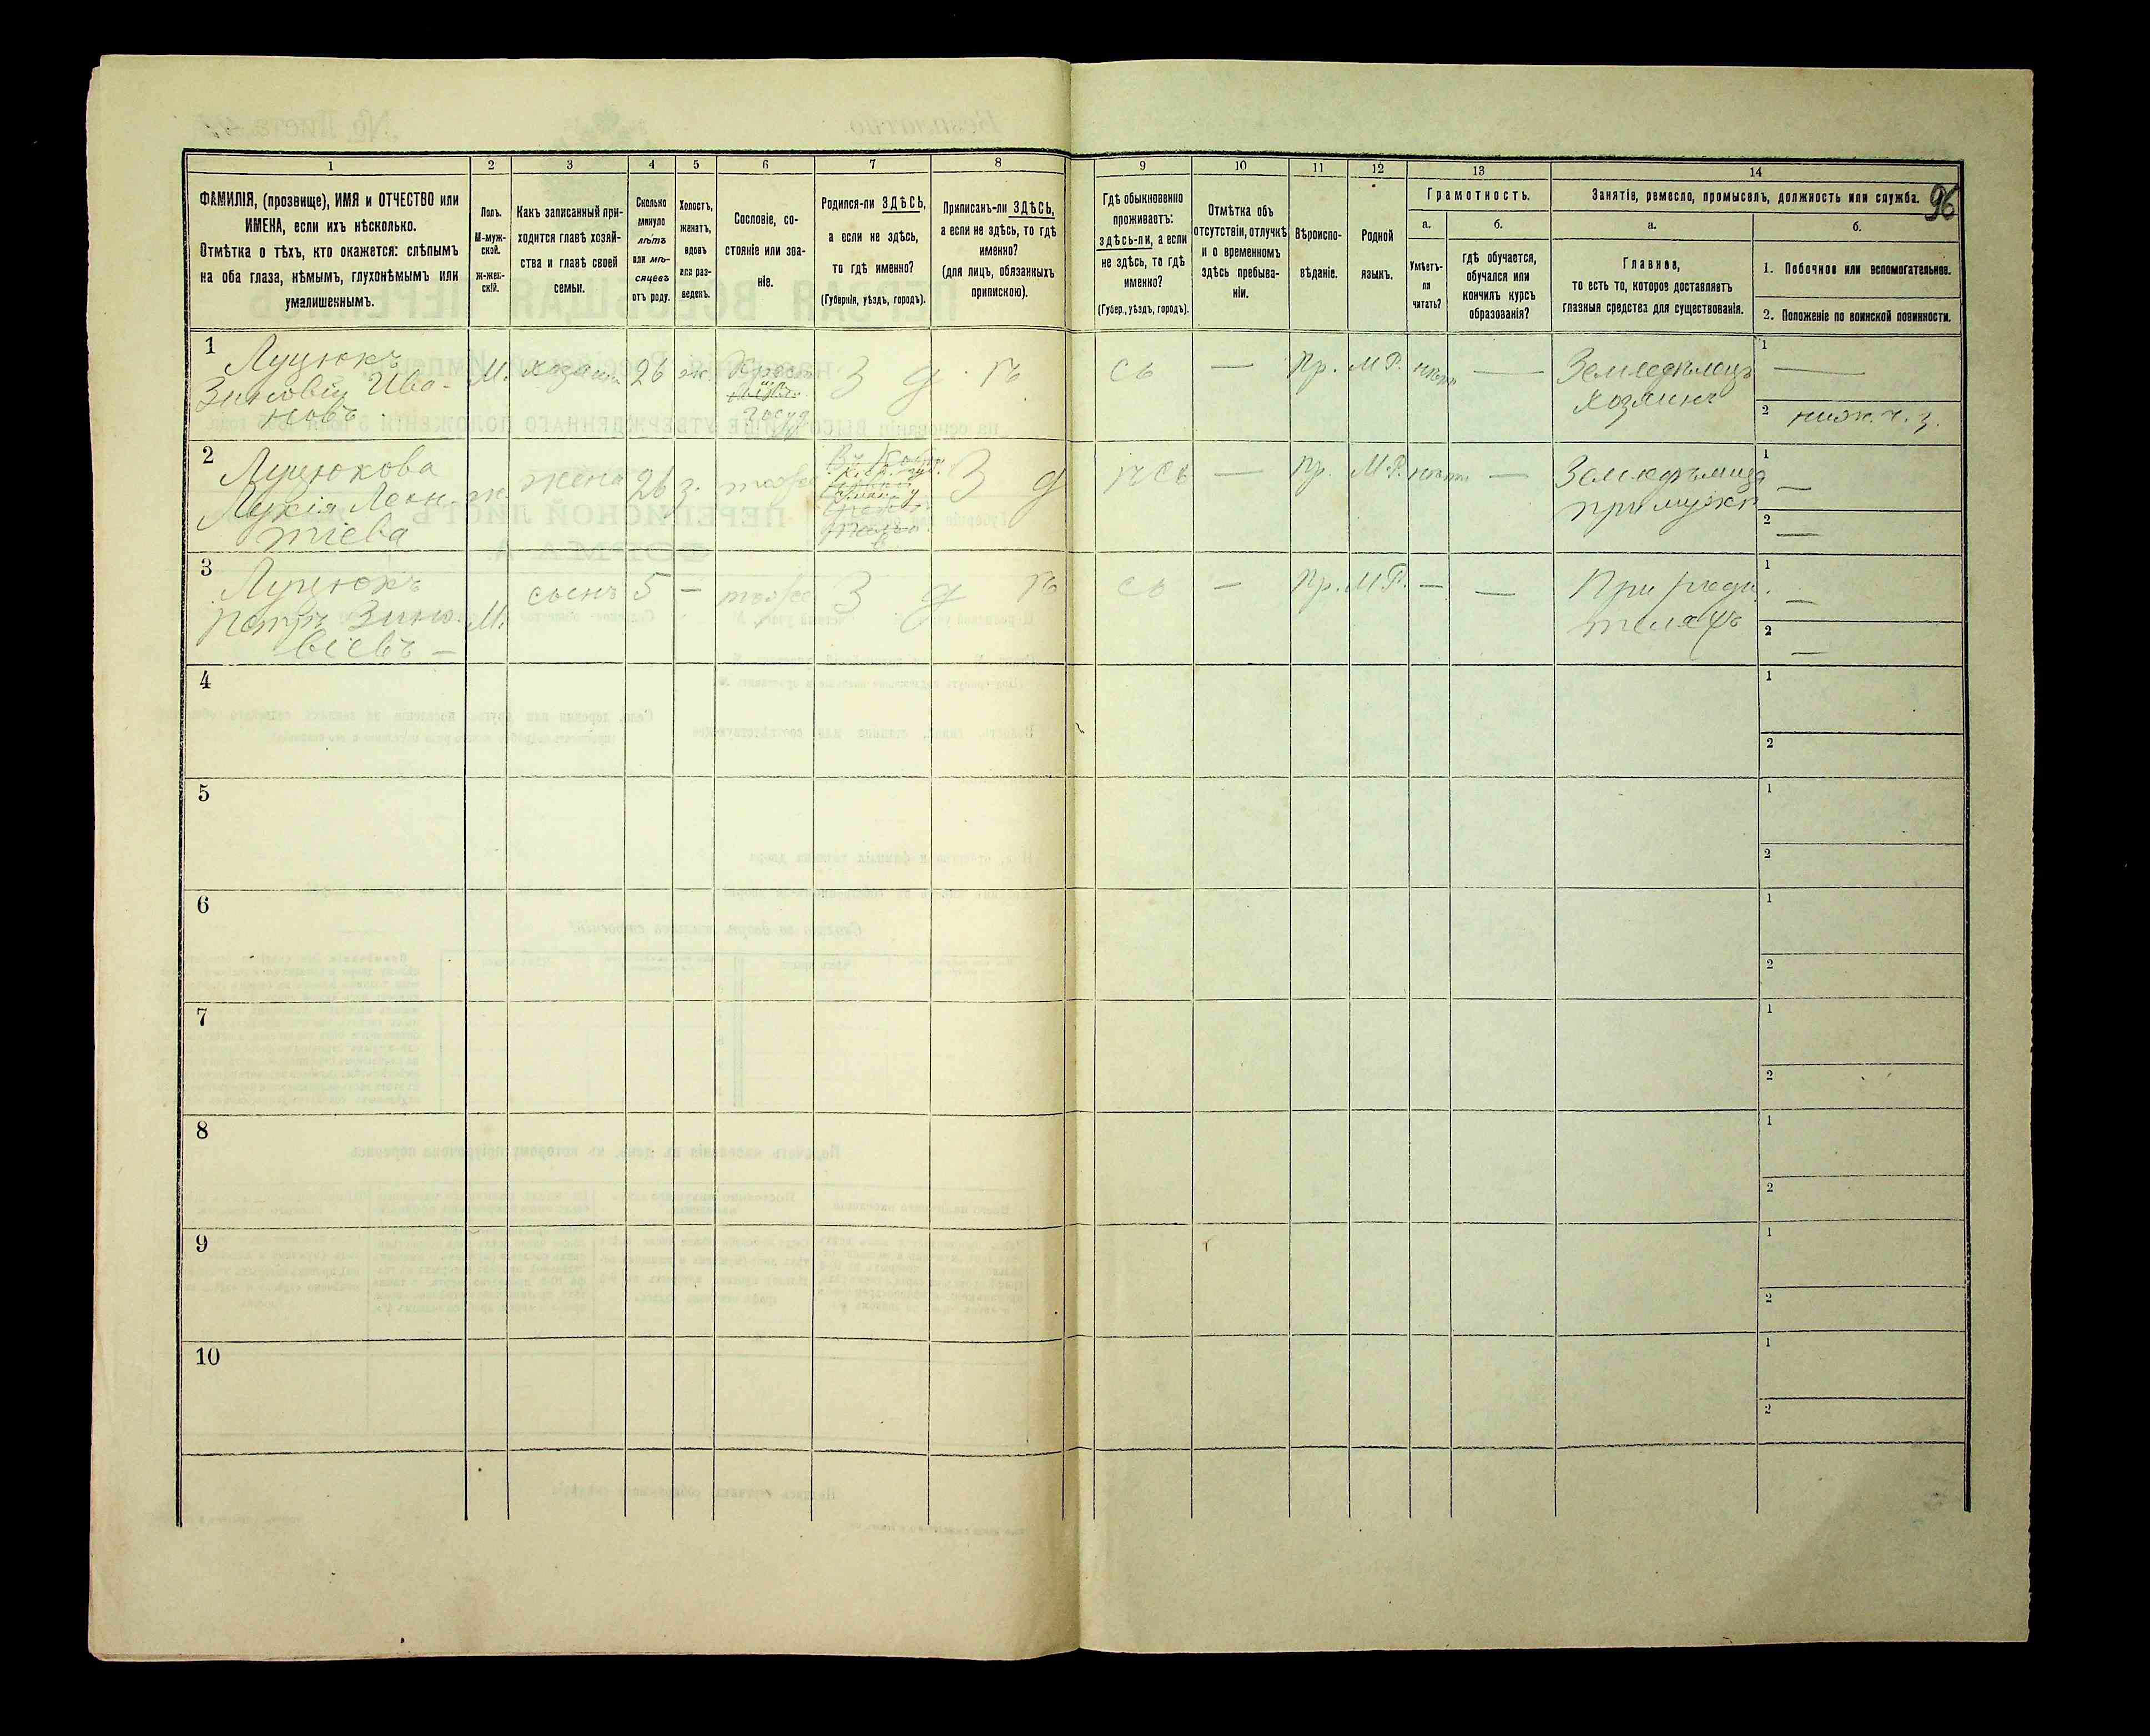 1 2 3 4 5 6 7 8 9 10 11 12 13 14
ФАМИЛІЯ, (прозвище), ИМЯ и ОТЧЕСТВО или
ИМЕНА, если ихъ нѣсколько.
Отмѣтка о тѣхъ, кто окажется: слѣпымъ
на оба глаза, нѣмымъ, глухонѣмымъ или
умалишеннымъ.
Полъ.
М-муж-
ской.
Ж-жен-
скій.
Какъ записанный при-
ходится главѣ хозяй-
ства и главѣ своей
семьи.
Сколько
минуло
лѣтъ
или мѣ-
сяцевъ
отъ роду.
Холостъ,
женатъ,
вдовъ
или раз-
веденъ.
Сословіе, со-
стояніе или зва-
ніе.
Родился-ли ЗДѢСЬ,
а если не здѣсь,
то гдѣ именно?
(Губернія, уѣздъ, городъ).
Приписанъ-ли ЗДѢСЬ,
а если не здѣсь, то гдѣ
именно?
(для лицъ, обязанныхъ
припискою).
Гдѣ обыкновенно
проживаетъ:
здѣсь-ли, а если
не здѣсь, то гдѣ
именно?
(Губер., уѣздъ, городъ).
Отмѣтка объ
отсутствіи, отлучкѣ
и о временномъ
здѣсь пребыва-
ніи.
Вѣроиспо-
вѣданіе.
Родной
языкъ.
Грамотность.
а.
Умѣетъ-
ли
читать?
б.
гдѣ обучается,
обучался или
кончилъ курсъ
образованія?
Занятіе, ремесло, промыселъ, должность или служба.
96
а.
Главное,
то есть то, которое доставляетъ
главныя средства для существованія.
б.
1. Побочное или вспомогательное.
2. Положеніе по воинской повинности.
1 Луцюкъ
Зиновій Ива-
новъ
М. хозяинъ 26 ж. Крест.
госуд
З д ѣ сь — Пр. М.Р. нѣтъ —
Земледѣлецъ
хозяинъ
1 —
2 ниж. ч. з.
2 Луцюкова
Лукія Леон-
тіева
ж. жена 26 з. тоже
З д ѣ сь — Пр. М.Р. нѣтъ —
Земледѣлица
при мужѣ
1 —
2 —
3 Луцюкъ
Петръ Зино-
віевъ —
М. сынъ 5 — тоже З д ѣ сь — Пр. М.Р. — —
При роди
теляхъ
1 —
2 —
4
1
2
5
1
2
6
1
2
7
1
2
8
1
2
9
1
2
10
1
2